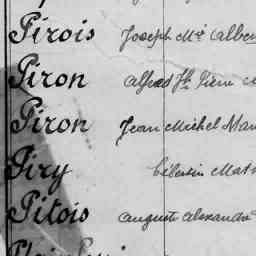 Pirois Joseph Mie Alber
Piron Alfred Jh Pierre
Piron Jean Michel
Piry Célestin
Pitois Auguste Alexandre